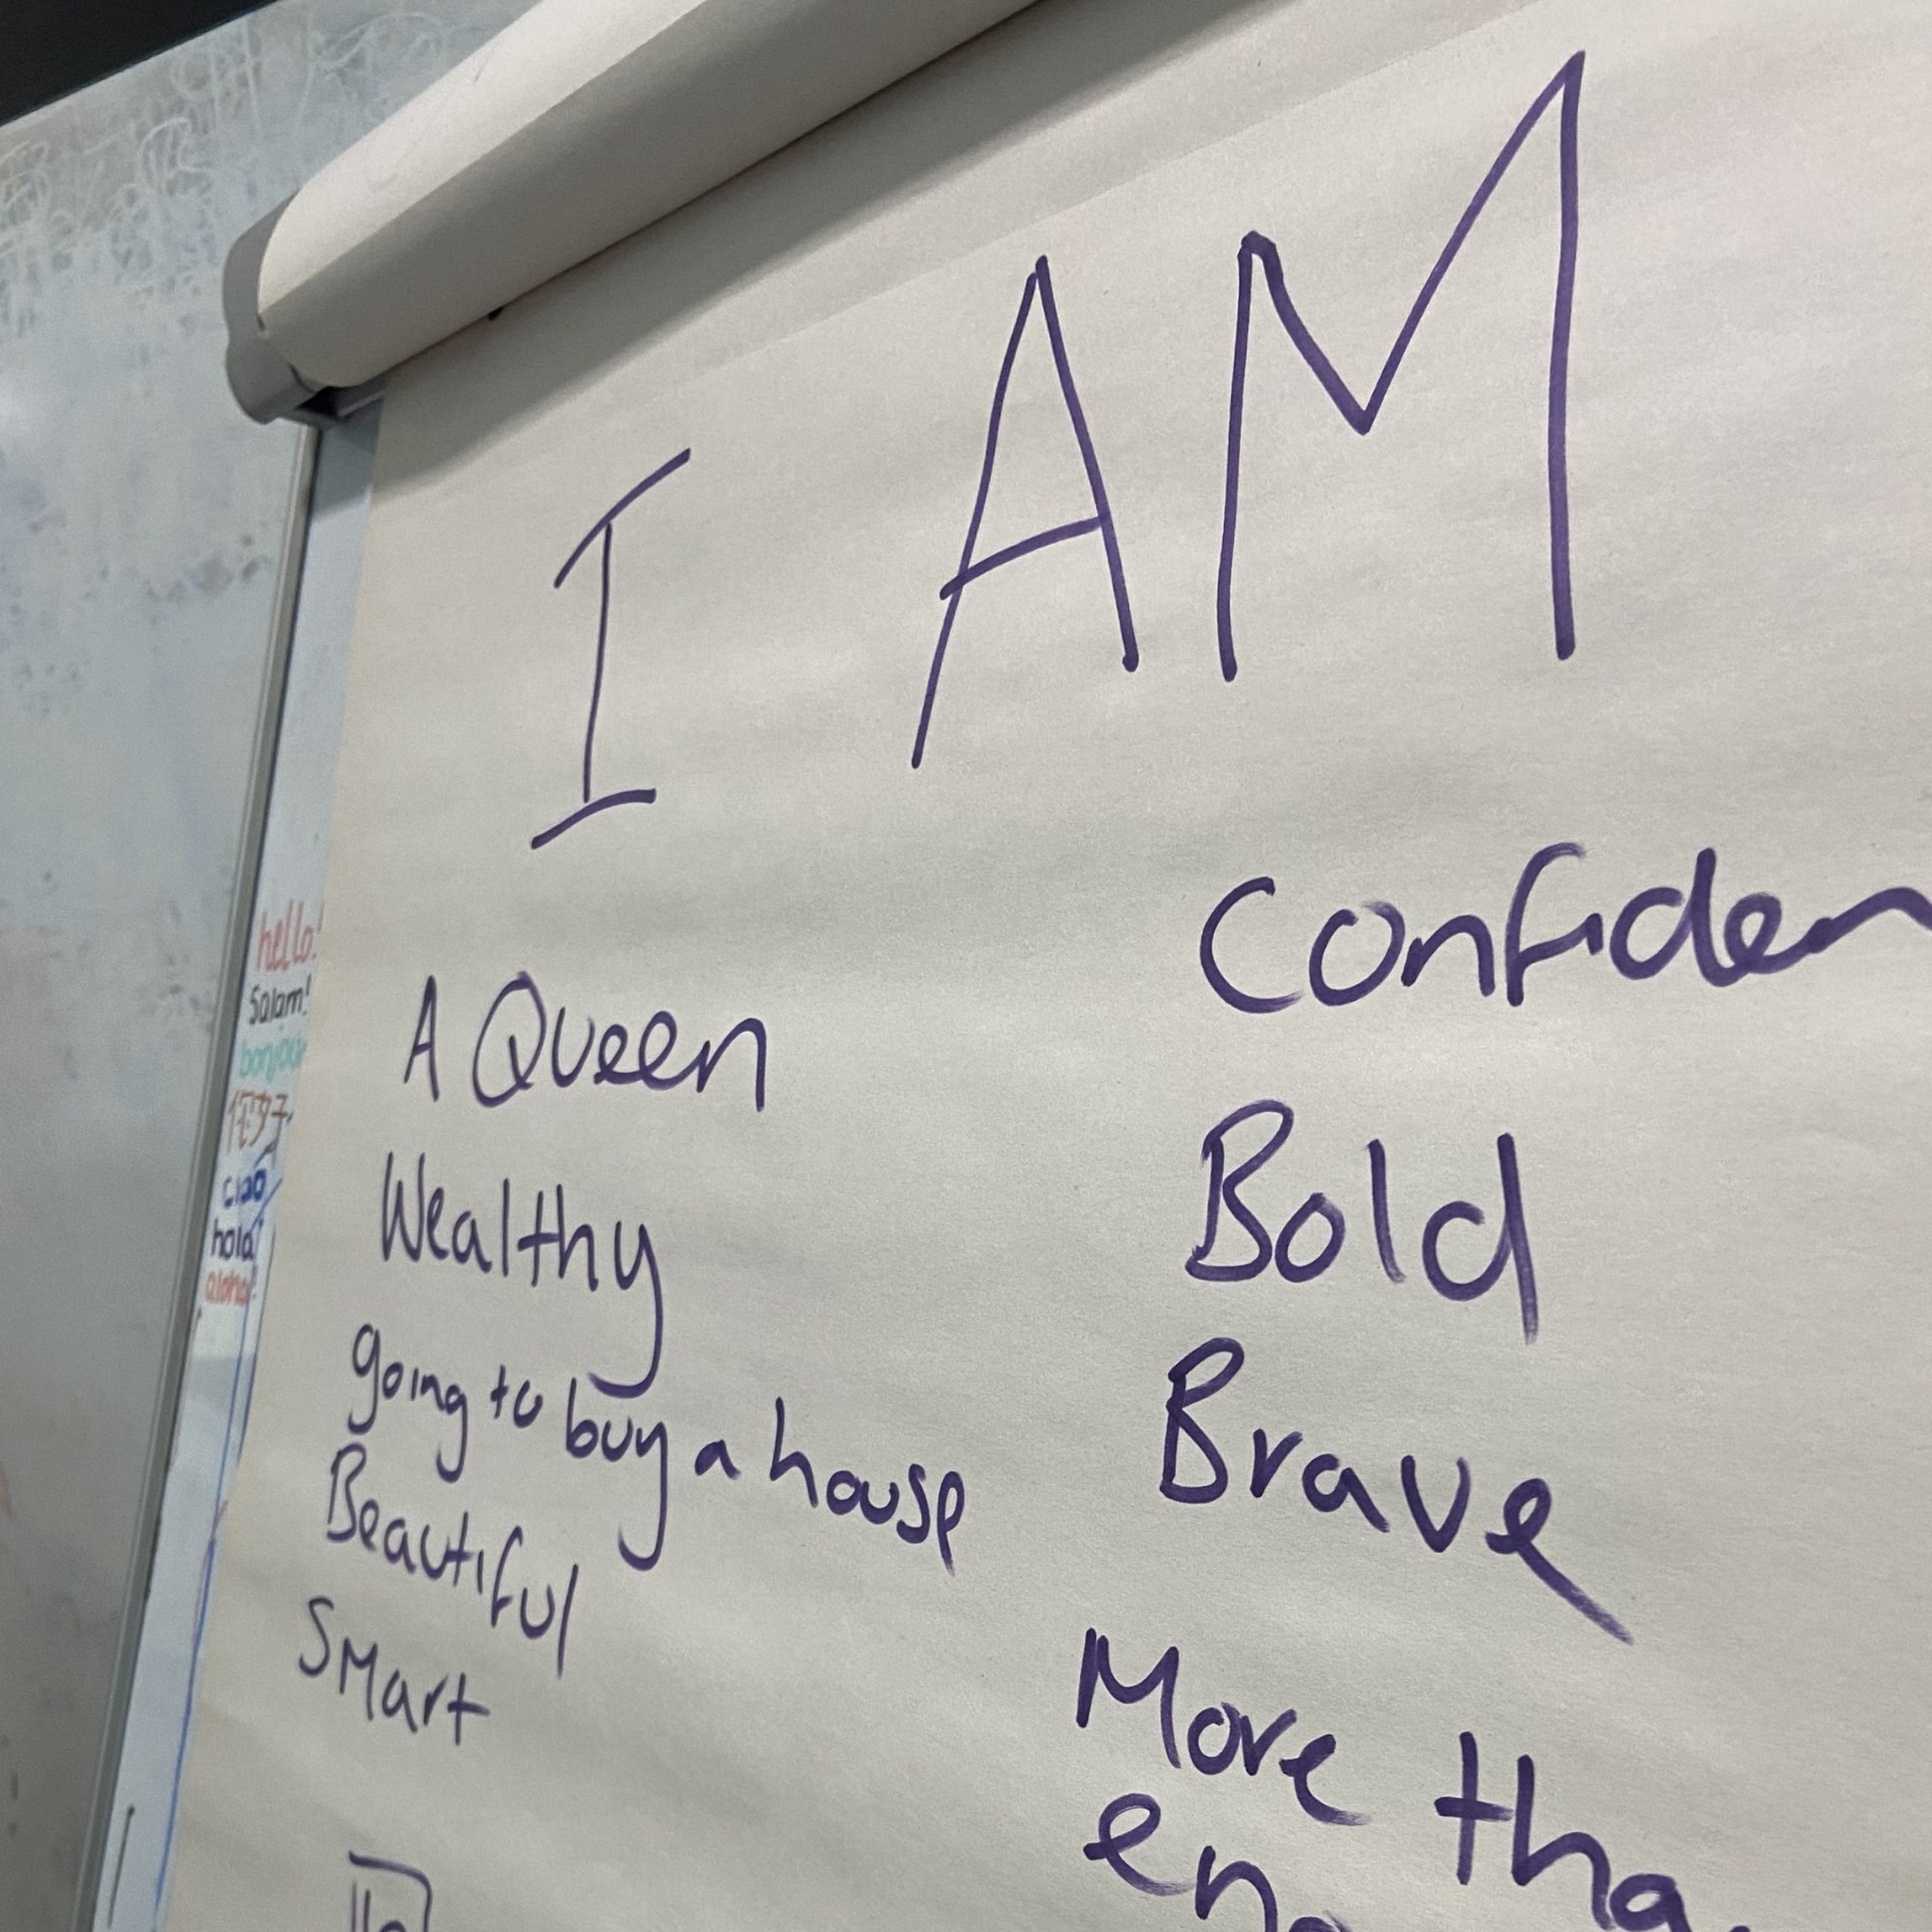 I AM
A Queen
Wealthy
going to buy a house
Beautiful
SMart
Confiden
Bold
Brave
More tha
en
hello!
Salam!
bonjour
ciao
hola!
aloha!